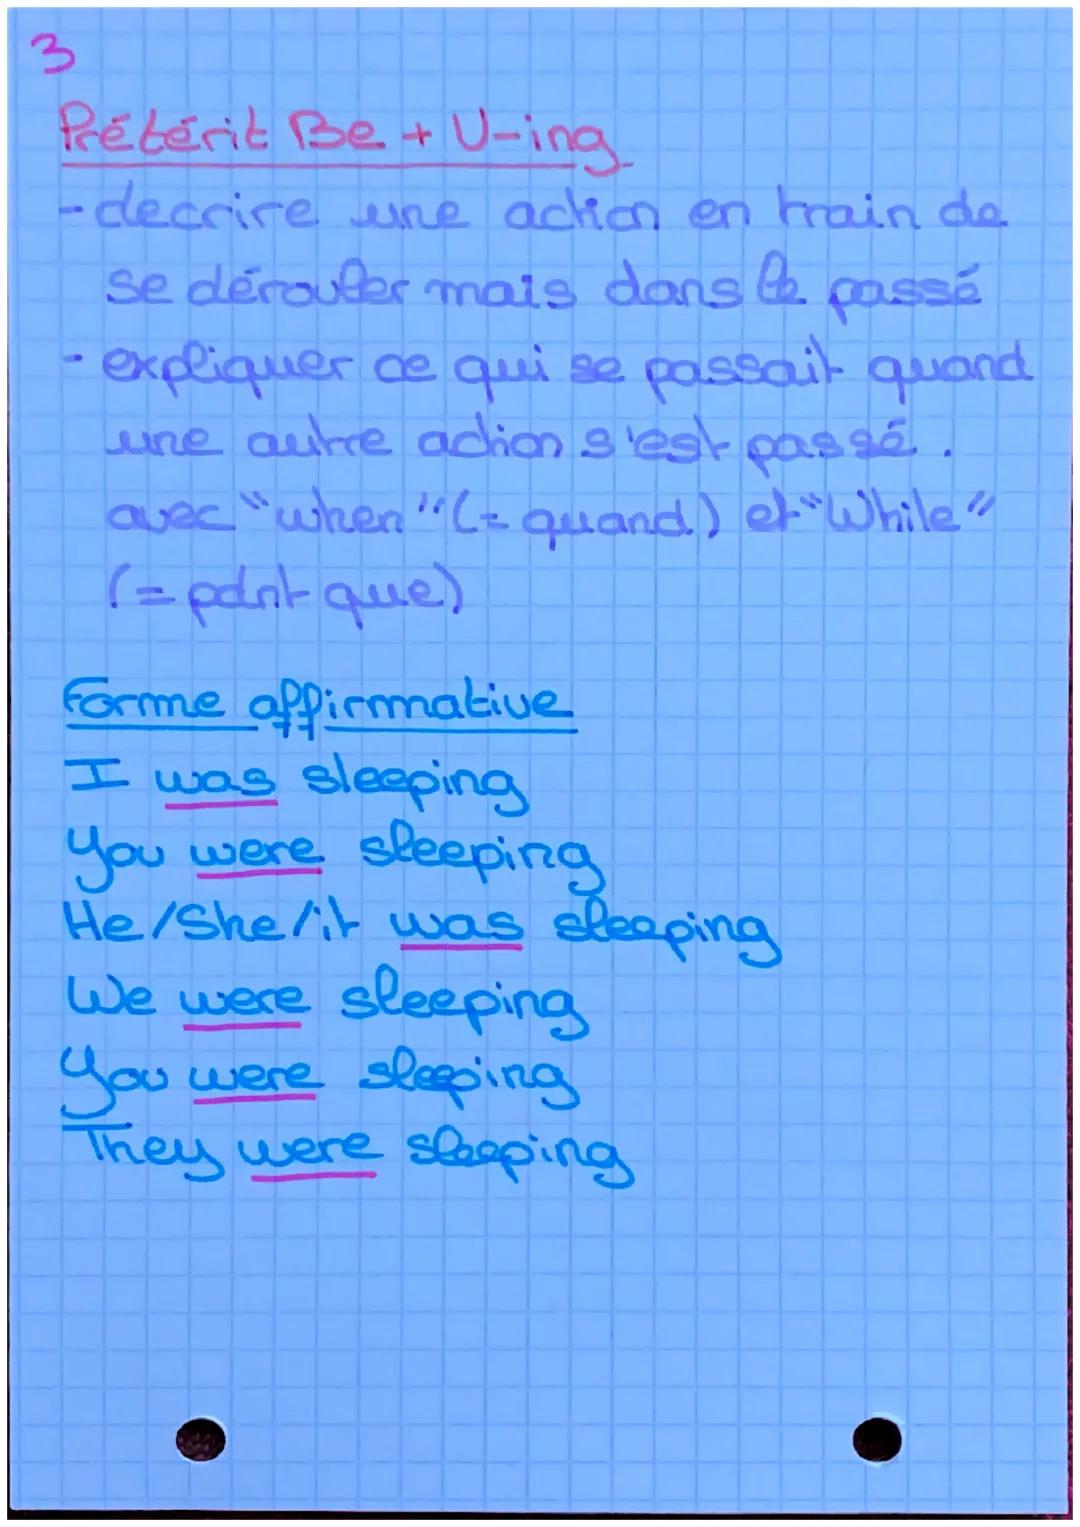 3
Prétérit Be + V-ing
- decrire une action en train de
se dérouler mais dans le passé
- expliquer ce qui se passait quand
une autre action s'est passé.
avec "when" (= quand) et "While"
(= pdnt que)
Forme affirmative
I was sleeping
You were sleeping
He/She/it was sleeping
We were sleeping
You were sleeping
They were sleeping